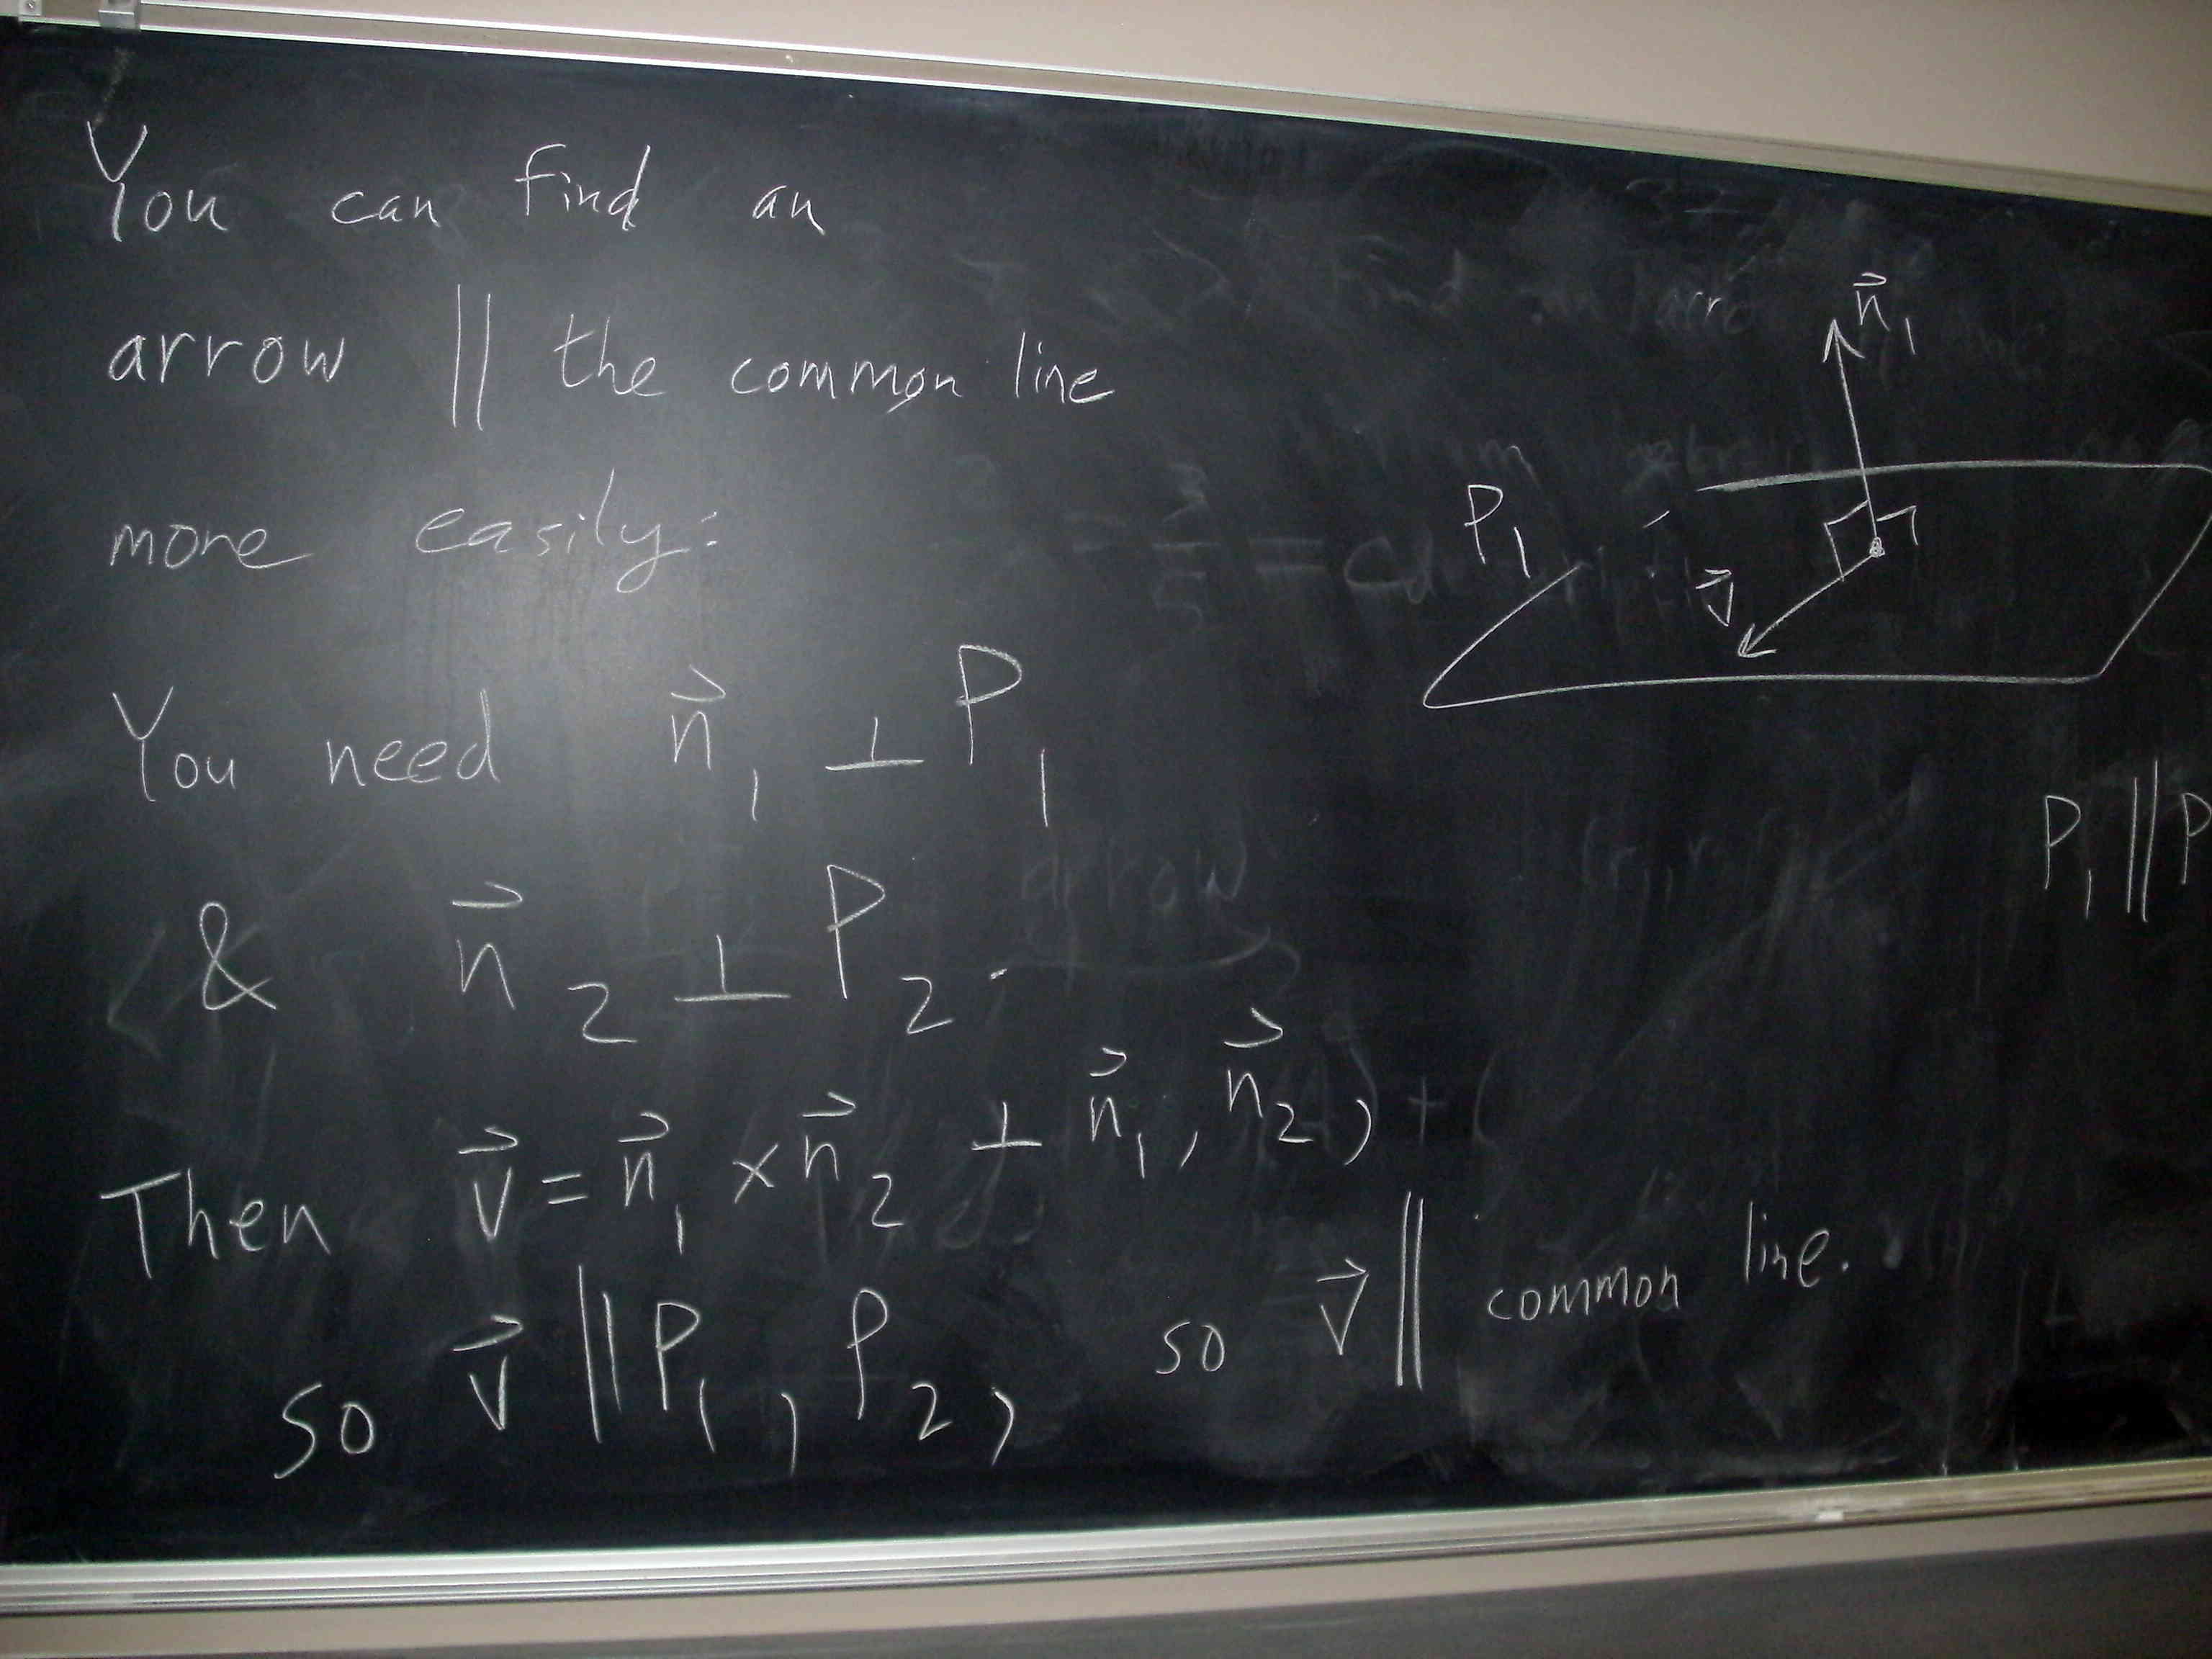 You can find an
arrow || the common line
more easily:
You need n⃗₁ ⊥ P₁
& n⃗₂ ⊥ P₂.
Then v⃗ = n⃗₁ × n⃗₂ ⊥ n⃗₁, n⃗₂,
so v⃗ || P₁, P₂, so v⃗ || common line.
n⃗₁
P₁
v⃗
P₁ || P